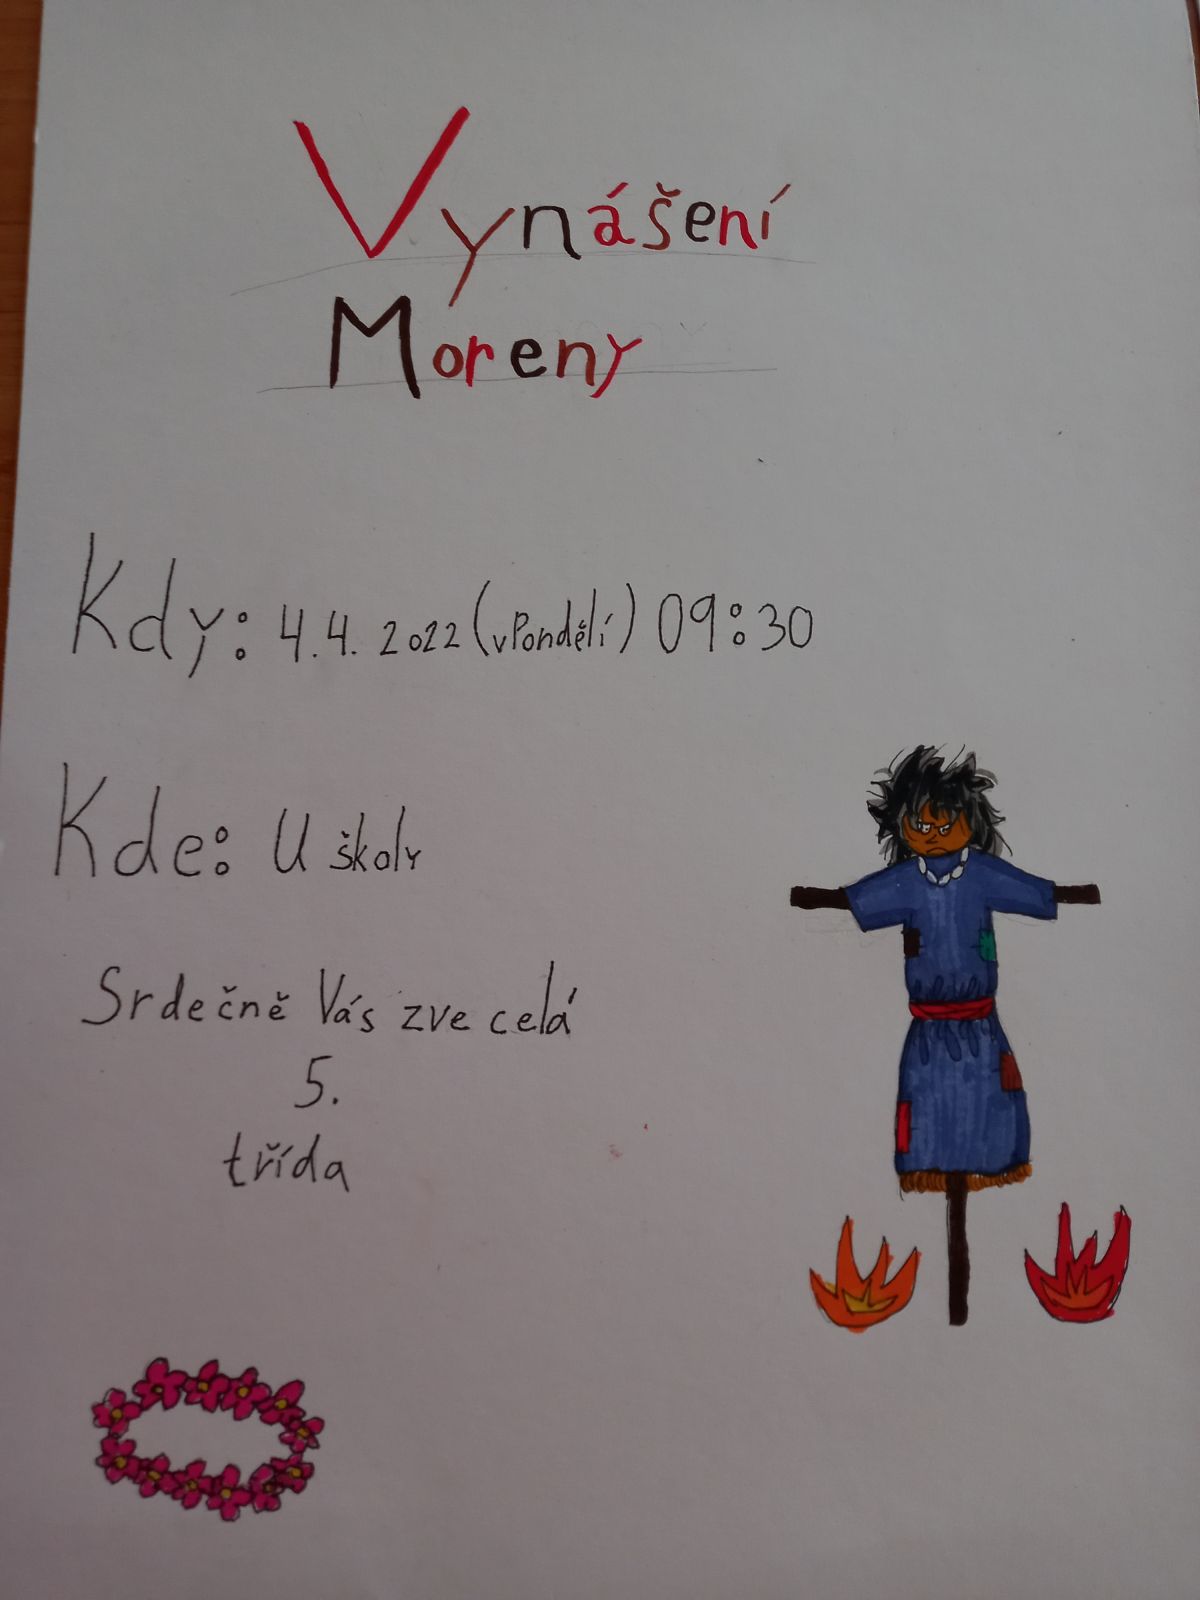 Vynášení
Moreny
Kdy: 4.4. 2022 (v Pondělí) 09:30
Kde: U školy
Srdečně Vás zve celá
5.
třída